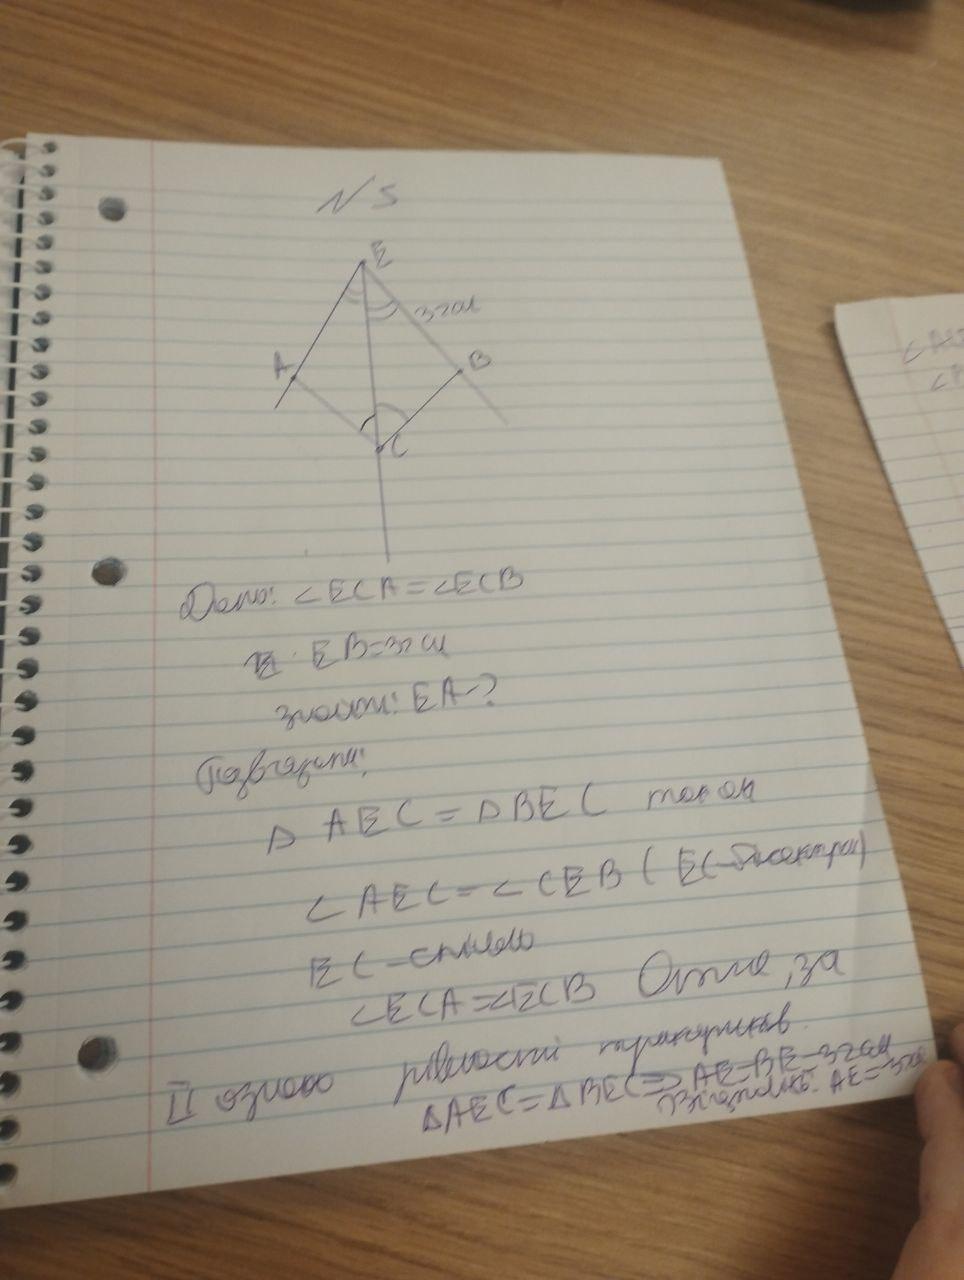 N 5
E
32см
A
B
C
Дано: ∠ECA=∠ECB
EB=32см
знайти: EA-?
Розв'язання:
△ AEC = △BEC так як
∠ AEC = ∠CEB ( EC-бісектриса)
EC-спільна
∠ECA=∠ECB Отже, за
II ознакою рівності трикутників
△AEC=△BEC=> AE=BE=32см
Відповідь: AE=32см